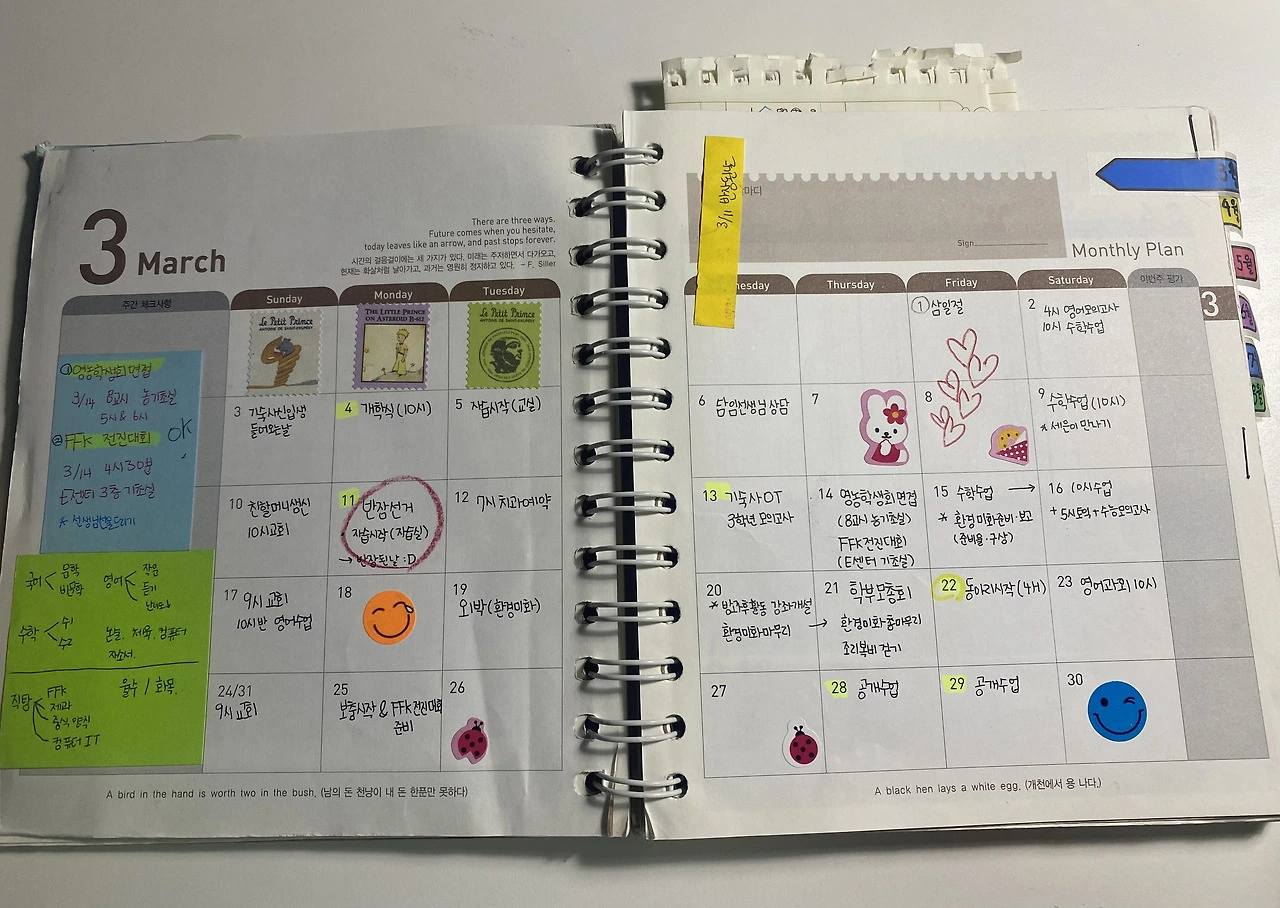 3 March
There are three ways.
Future comes when you hesitate,
today leaves like an arrow, and past stops forever.
시간의 걸음걸이에는 세 가지가 있다. 미래는 주저하면서 다가오고,
현재는 화살처럼 날아가고, 과거는 영원히 정지하고 있다. – F. Siller
주간 체크사항
Sunday
Monday
Tuesday
Le Petit Prince
ANTOINE DE SAINT-EXUPÉRY
THE LITTLE PRINCE
ON ASTEROID B-612
Le Petit Prince
ANTOINE DE SAINT-EXUPÉRY
① 영농학생회 면접
3/14 8교시 농기초실
5시 & 6시
② FFK 전진대회 OK
3/14 4시 30분
E센터 3층 기초실
국어 문학
비문학
영어 작문
듣기
수학 수1
수2
논술, 제육, 컴퓨터
자소서
직탐 FFK
제과
중식 양식
컴퓨터 IT
율수 / 화목
3 기숙사신입생
들어오는날
4 개학식 (10시)
5 자습시작 (교실)
10 친할머니생신
10시교회
11 반장선거
자습시작 (자습실)
→ 반장된날 :D
12 7시 치과예약
17 9시 교회
10시반 영어수업
18
19
외박 (환경미화)
24/31
9시 교회
25
보충시작 & FFK전진대회
준비
26
A bird in the hand is worth two in the bush. (남의 돈 천냥이 내 돈 한푼만 못하다)
3/11 반장된날
마디
Sign
Monthly Plan
3월
4월
5월
3
nesday
Thursday
Friday
Saturday
이번주 평가
① 삼일절
2 4시 영어모의고사
10시 수학수업
6 담임선생님 상담
7
8
9 수학수업 (10시)
* 세은이 만나기
13 기숙사 OT
3학년 모의고사
14 영농학생회 면접
(8교시 농기초실)
FFK 전진대회
(E센터 기초실)
15 수학수업 →
* 환경미화준비·보고
(준비물·구상)
16 10시수업
+ 5시토익 + 수능모의고사
20
* 방과후활동 강좌개설
환경미화마무리 →
21 학부모총회
환경미화 총마무리
조리복비 걷기
22 동아리시작 (4H)
23 영어과외 10시
27
28 공개수업
29 공개수업
30
A black hen lays a white egg. (개천에서 용 나다.)